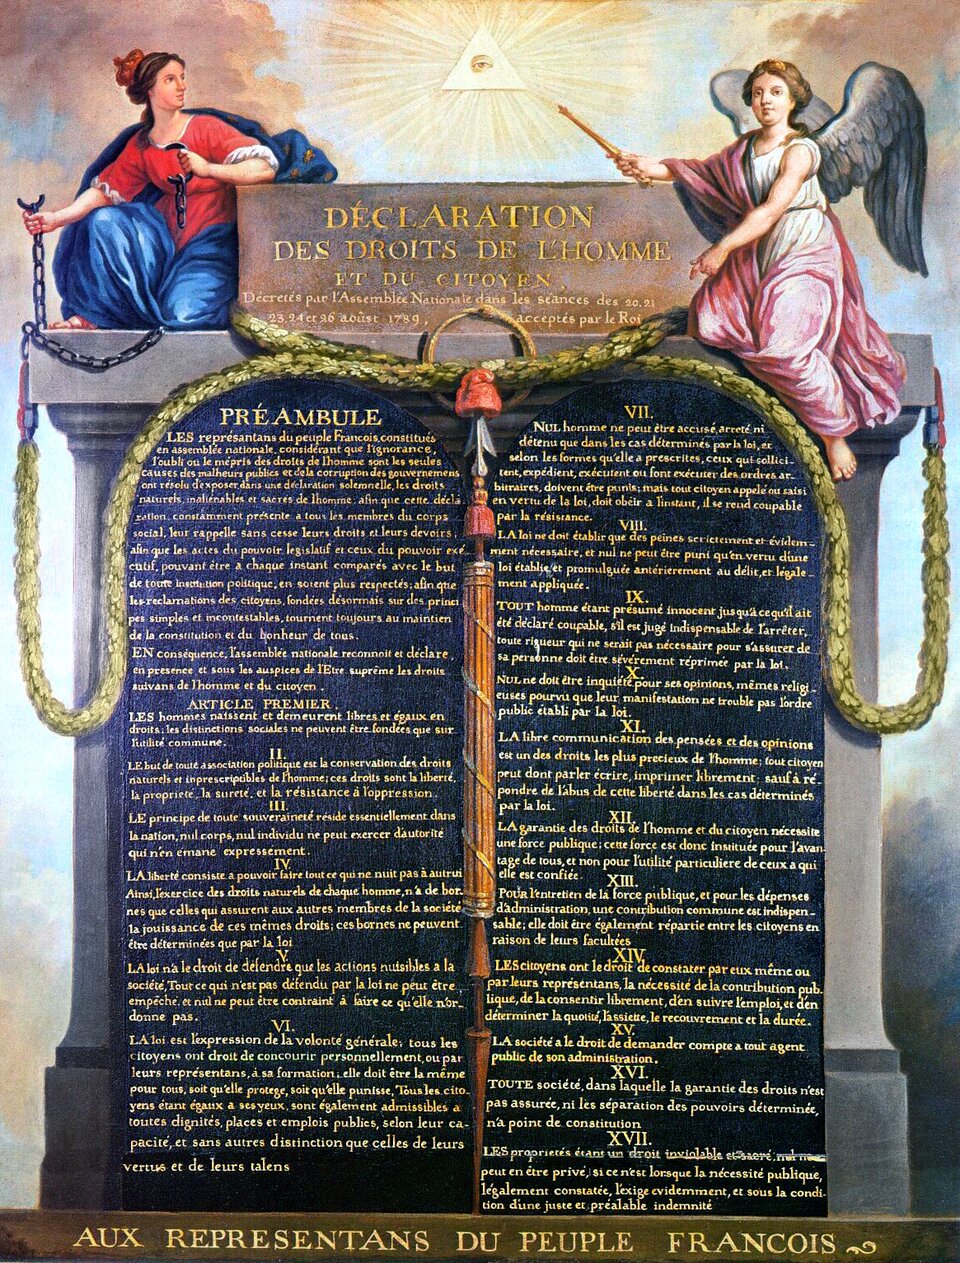 DÉCLARATION
DES DROITS DE L'HOMME
ET DU CITOYEN,
Décretés par l'Assemblée Nationale dans les séances des 20, 21
23, 24 et 26 août 1789, acceptés par le Roi
PRÉAMBULE
LES représantans du peuple Francois, constitués
en assemblée nationale, considérant que l'ignorance,
l'oubli ou le mépris des droits de l'homme sont les seules
causes des malheurs publics et de la corruption des gouvernemens
ont résolu d'exposer dans une déclaration solemnelle, les droits
naturels, inaliénables et sacrés de l'homme; afin que cette décla
ration, constamment présente a tous les membres du corps
social, leur rappelle sans cesse leurs droits et leurs devoirs,
afin que les actes du pouvoir legislatif et ceux du pouvoir exé
cutif, pouvant être a chaque instant comparés avec le but
de toute institution politique, en soient plus respectés; afin que
les reclamations des citoyens, fondées désormais sur des princi
pes simples et incontestables, tournent toujours au maintien
de la constitution et du bonheur de tous.
EN conséquence, l'assemblée nationale reconnoit et déclare,
en presence et sous les auspices de l'Etre suprême les droits
suivans de l'homme et du citoyen.
ARTICLE PREMIER.
LES hommes naissent et demeurent libres et égaux en
droits, les distinctions sociales ne peuvent être fondées que sur
l'utilité commune.
II.
LE but de toute association politique est la conservation des droits
naturels et inprescriptibles de l'homme; ces droits sont la liberté,
la propriete, la sureté, et la résistance à l'oppression.
III.
LE principe de toute souveraineté réside essentiellement dans
la nation, nul corps, nul individu ne peut exercer d'autorité
qui n'en émane expressément.
IV.
LA liberté consiste a pouvoir faire tout ce qui ne nuit pas à autrui
Ainsi, l'exercice des droits naturels de chaque homme, n'a de bor-
nes que celles qui assurent aux autres membres de la société
la jouissance de ces mêmes droits; ces bornes ne peuvent
être déterminées que par la loi
V.
LA loi n'a le droit de défendre que les actions nuisibles a la
société, Tout ce qui n'est pas défendu par la loi ne peut être
empêché, et nul ne peut être contraint à faire ce qu'elle n'or-
donne pas.
VI.
LA loi est l'expression de la volonté générale; tous les
citoyens ont droit de concourir personnellement, ou par
leurs représentans, à sa formation; elle doit être la même
pour tous, soit qu'elle protege, soit qu'elle punisse, Tous les cito-
yens étant égaux a ses yeux, sont également admissibles a
toutes dignités, places et emplois publics, selon leur ca-
pacité, et sans autres distinction que celles de leurs
vertus et de leurs talens
VII.
NUL homme ne peut être accusé, arreté, ni
détenu que dans les cas déterminés par la loi, et
selon les formes qu'elle a prescrites, ceux qui sollici-
tent, expédient, exécutent ou font exécuter des ordres ar-
bitraires, doivent être punis; mais tout citoyen appelé ou saisi
en vertu de la loi, doit obéir a l'instant, il se rend coupable
par la résistance.
VIII.
LA loi ne doit établir que des peines strictement et évidem-
ment nécessaire, et nul ne peut être puni qu'en vertu d'une
loi établie, et promulguée antérierement au délit, et légale-
ment appliquée.
IX.
TOUT homme étant présumé innocent jusqu'a ce qu'il ait
été déclaré coupable, s'il est jugé indispensable de l'arrêter,
toute rigueur qui ne serait pas nécessaire pour s'assurer de
sa personne doit être sévèrement réprimée par la loi.
X.
NUL ne doit être inquiété pour ses opinions, mêmes religi-
euses pourvu que leur manifestation ne trouble pas l'ordre
public établi par la loi.
XI.
LA libre communication des pensées et des opinions
est un des droits les plus precieux de l'homme; tout citoyen
peut dont parler écrire, imprimer librement; sauf à ré-
pondre de l'abus de cette liberté dans les cas déterminés
par la loi.
XII.
LA garantie des droits de l'homme et du citoyen nécessite
une force publique; cette force est donc instituée pour l'avan-
tage de tous, et non pour l'utilité particuliere de ceux a qui
elle est confiée.
XIII.
POUR l'entretien de la force publique, et pour les dépenses
d'administration, une contribution commune est indispen-
sable; elle doit être également répartie entre les citoyens en
raison de leurs facultées
XIV.
LES citoyens ont le droit de constater par eux même ou
par leurs représentans, la nécessité de la contribution pub-
lique, de la consentir librement, d'en suivre l'emploi, et d'en
déterminer la quotité, l'assiette, le recouvrement et la durée.
XV.
LA société a le droit de demander compte a tout agent
public de son administration.
XVI.
TOUTE société, dans laquelle la garantie des droits n'est
pas assurée, ni les séparation des pouvoirs déterminée,
n'a point de constitution
XVII.
LES proprietés étant un droit inviolable et sacré, nul ne
peut en être privé, si ce n'est lorsque la nécessité publique,
légalement constatée, l'exige evidemment, et sous la condi-
tion d'une juste et préalable indemnité
AUX REPRESENTANS DU PEUPLE FRANCOIS